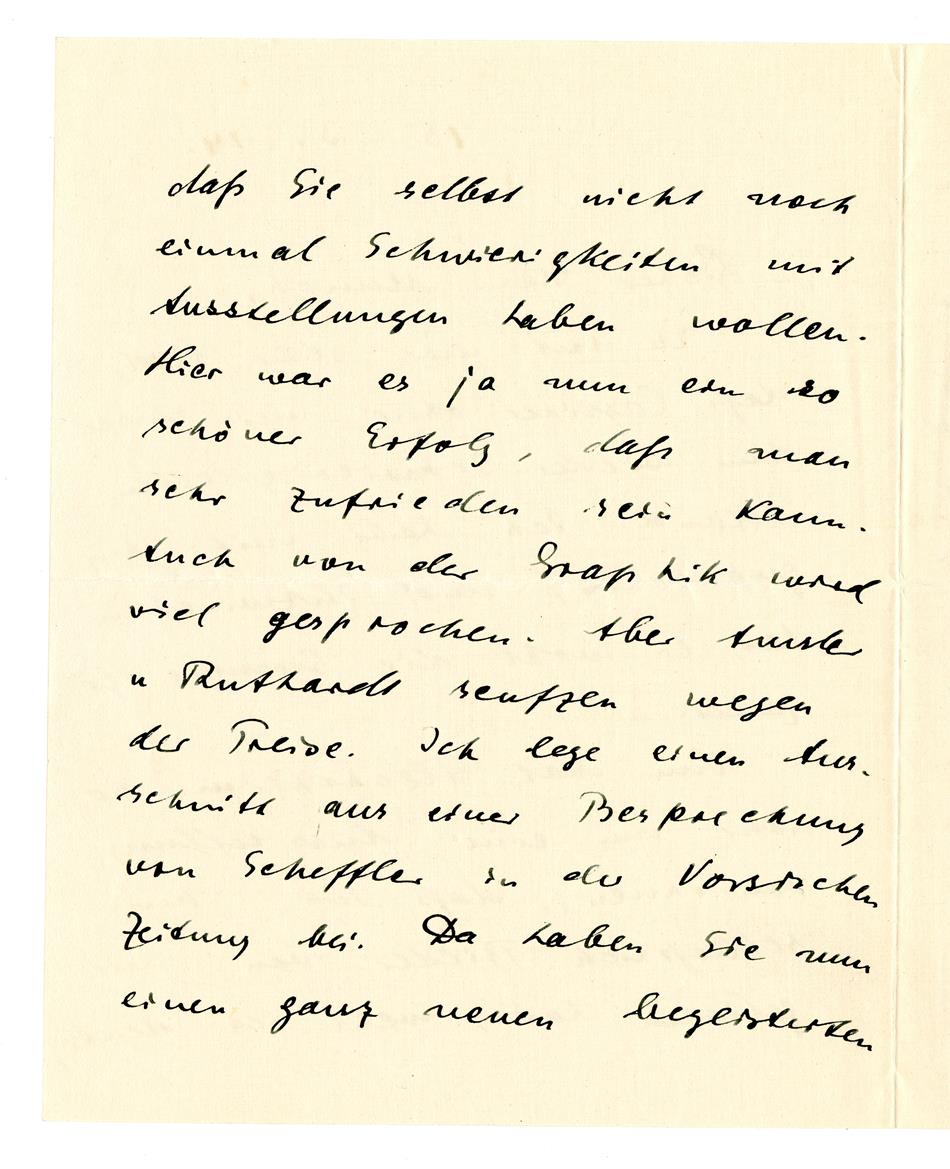 daß Sie selbst nicht noch
einmal Schwierigkeiten mit
Ausstellungen haben wollen.
Hier war es ja nun ein so
schöner Erfolg, daß man
sehr zufrieden sein kann.
Auch von der Graphik wird
viel gesprochen. Aber Amsler
u Ruthardt seufzen wegen
der Preise. Ich lege einen Aus-
schnitt aus einer Besprechung
von Scheffler in der Vossischen
Zeitung bei. Da haben Sie nun
einen ganz neuen begeisterten